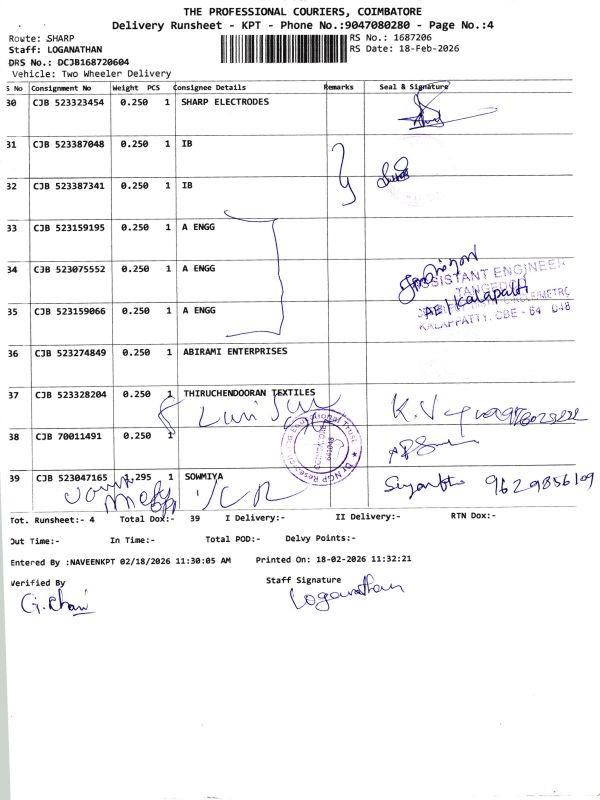 THE PROFESSIONAL COURIERS, COIMBATORE
Delivery Runsheet - KPT - Phone No.:9047080280 - Page No.:4
Route: SHARP
RS No.: 1687206
Staff: LOGANATHAN
RS Date: 18-Feb-2026
DRS No.: DCJB168720604
Vehicle: Two Wheeler Delivery
S No Consignment No Weight PCS Consignee Details Remarks Seal & Signature
30 CJB 523323454 0.250 1 SHARP ELECTRODES
31 CJB 523387048 0.250 1 IB
32 CJB 523387341 0.250 1 IB
33 CJB 523159195 0.250 1 A ENGG
34 CJB 523075552 0.250 1 A ENGG
ASSISTANT ENGINEER
TANGEDCO
AE/Kalapatti
35 CJB 523159066 0.250 1 A ENGG
KALAPPATTY, CBE - 64 048
36 CJB 523274849 0.250 1 ABIRAMI ENTERPRISES
37 CJB 523328204 0.250 1 THIRUCHENDOORAN TEXTILES
38 CJB 70011491 0.250 1
Dr NGP Research Educational Trust
39 CJB 523047165 1.295 1 SOWMIYA
9629856109
Tot. Runsheet:- 4 Total Dox:- 39 I Delivery:- II Delivery:- RTN Dox:-
Out Time:- In Time:- Total POD:- Delvy Points:-
Entered By :NAVEENKPT 02/18/2026 11:30:05 AM Printed On: 18-02-2026 11:32:21
Verified By Staff Signature
Loganathan